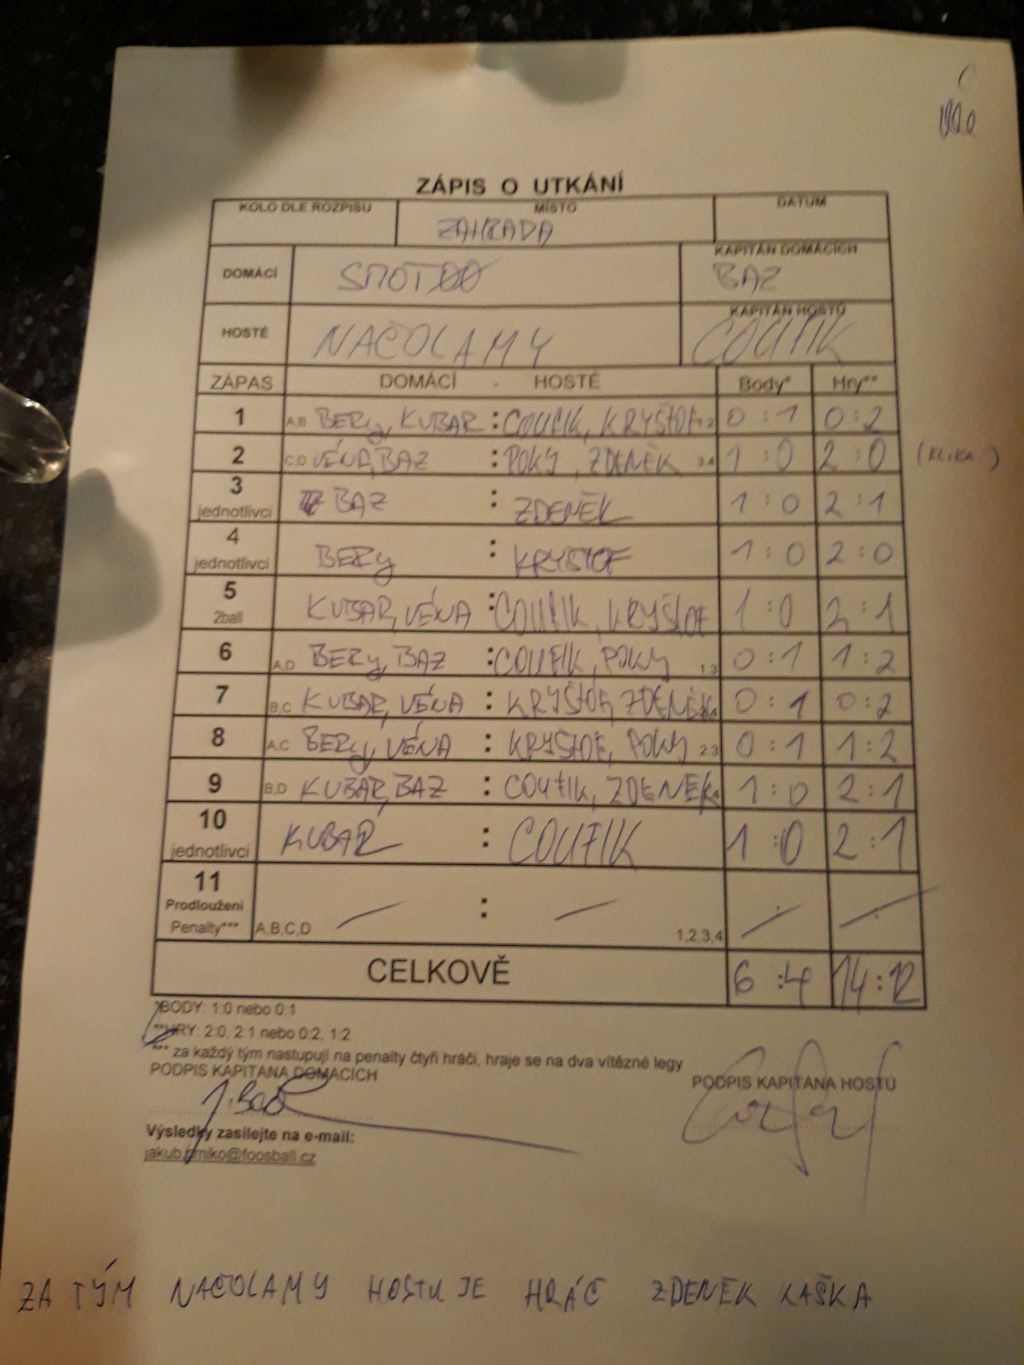 ZÁPIS O UTKÁNÍ
KOLO DLE ROZPISU MÍSTO DATUM
ZAHRADA
DOMÁCÍ SMOTDO KAPITÁN DOMÁCÍCH
BAZ
HOSTÉ NAČOLAMY KAPITÁN HOSTŮ
COUFIK
ZÁPAS DOMÁCÍ - HOSTÉ Body* Hry**
1 A,B BERY, KUBAR : COUFIK, KRYŠTOF 1,2 0:1 0:2
2 C,D VÉNA, BAZ : POKY, ZDENĚK 3,4 1:0 2:0 (KLIKA)
3 jednotlivci BAZ : ZDENĚK 1:0 2:1
4 jednotlivci BERY : KRYSTOF 1:0 2:0
5 2ball KUBAR, VÉNA : COUFIK, KRYŠTOF 1:0 2:1
6 A,D BERY, BAZ : COUFIK, POKY 1,3 0:1 1:2
7 B,C KUBAR, VÉNA : KRYŠTOF, ZDENĚK 0:1 0:2
8 A,C BERY, VÉNA : KRYŠTOF, POKY 2,3 0:1 1:2
9 B,D KUBAR, BAZ : COUFIK, ZDENĚK 1:0 2:1
10 jednotlivci KUBAR : COUFIK 1:0 2:1
11 Prodloužení Penalty*** A,B,C,D : 1,2,3,4
CELKOVĚ 6:4 14:12
*BODY: 1:0 nebo 0:1
**HRY: 2:0, 2:1 nebo 0:2, 1:2
*** za každý tým nastupují na penalty čtyři hráči, hraje se na dva vítězné legy
PODPIS KAPITÁNA DOMÁCÍCH PODPIS KAPITÁNA HOSTŮ
Výsledky zasílejte na e-mail:
@foosball.cz
ZA TÝM NAČOLAMY HOSTUJE HRÁČ ZDENEK KAŠKA